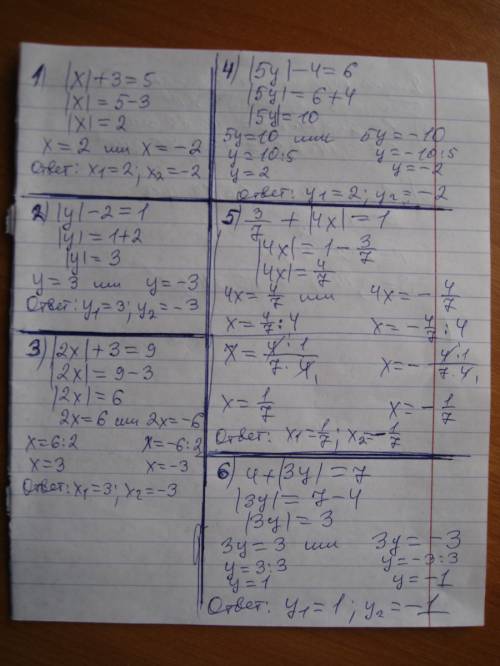 1) |x|+3=5
|x|=5-3
|x|=2
x=2 или x=-2
Ответ: x₁=2; x₂=-2
2) |y|-2=1
|y|=1+2
|y|=3
y=3 или y=-3
Ответ: y₁=3; y₂=-3
3) |2x|+3=9
|2x|=9-3
|2x|=6
2x=6 или 2x=-6
x=6:2 x=-6:2
x=3 x=-3
Ответ: x₁=3; x₂=-3
4) |5y|-4=6
|5y|=6+4
|5y|=10
5y=10 или 5y=-10
y=10:5 y=-10:5
y=2 y=-2
Ответ: y₁=2; y₂=-2
5) 3/7 + |4x|=1
|4x|=1-3/7
|4x|=4/7
4x=4/7 или 4x=-4/7
x=4/7:4 x=-4/7:4
x=4·1/7·4₁ x=-4·1/7·4₁
x=1/7 x=-1/7
Ответ: x₁=1/7; x₂=-1/7
6) 4+|3y|=7
|3y|=7-4
|3y|=3
3y=3 или 3y=-3
y=3:3 y=-3:3
y=1 y=-1
Ответ: y₁=1; y₂=-1